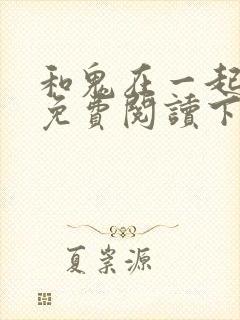 和鬼在一起
免費閱讀下
夏崇源